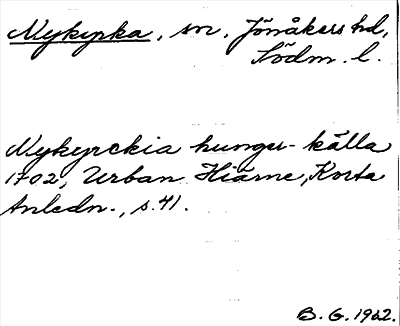 Nykyrka, sn, Jönåkers hd,
Södm. l.
Nykyrckia hunger-källa
1702, Urban Hiärne, Korta
Anledn., s. 41.
B. G. 1962.